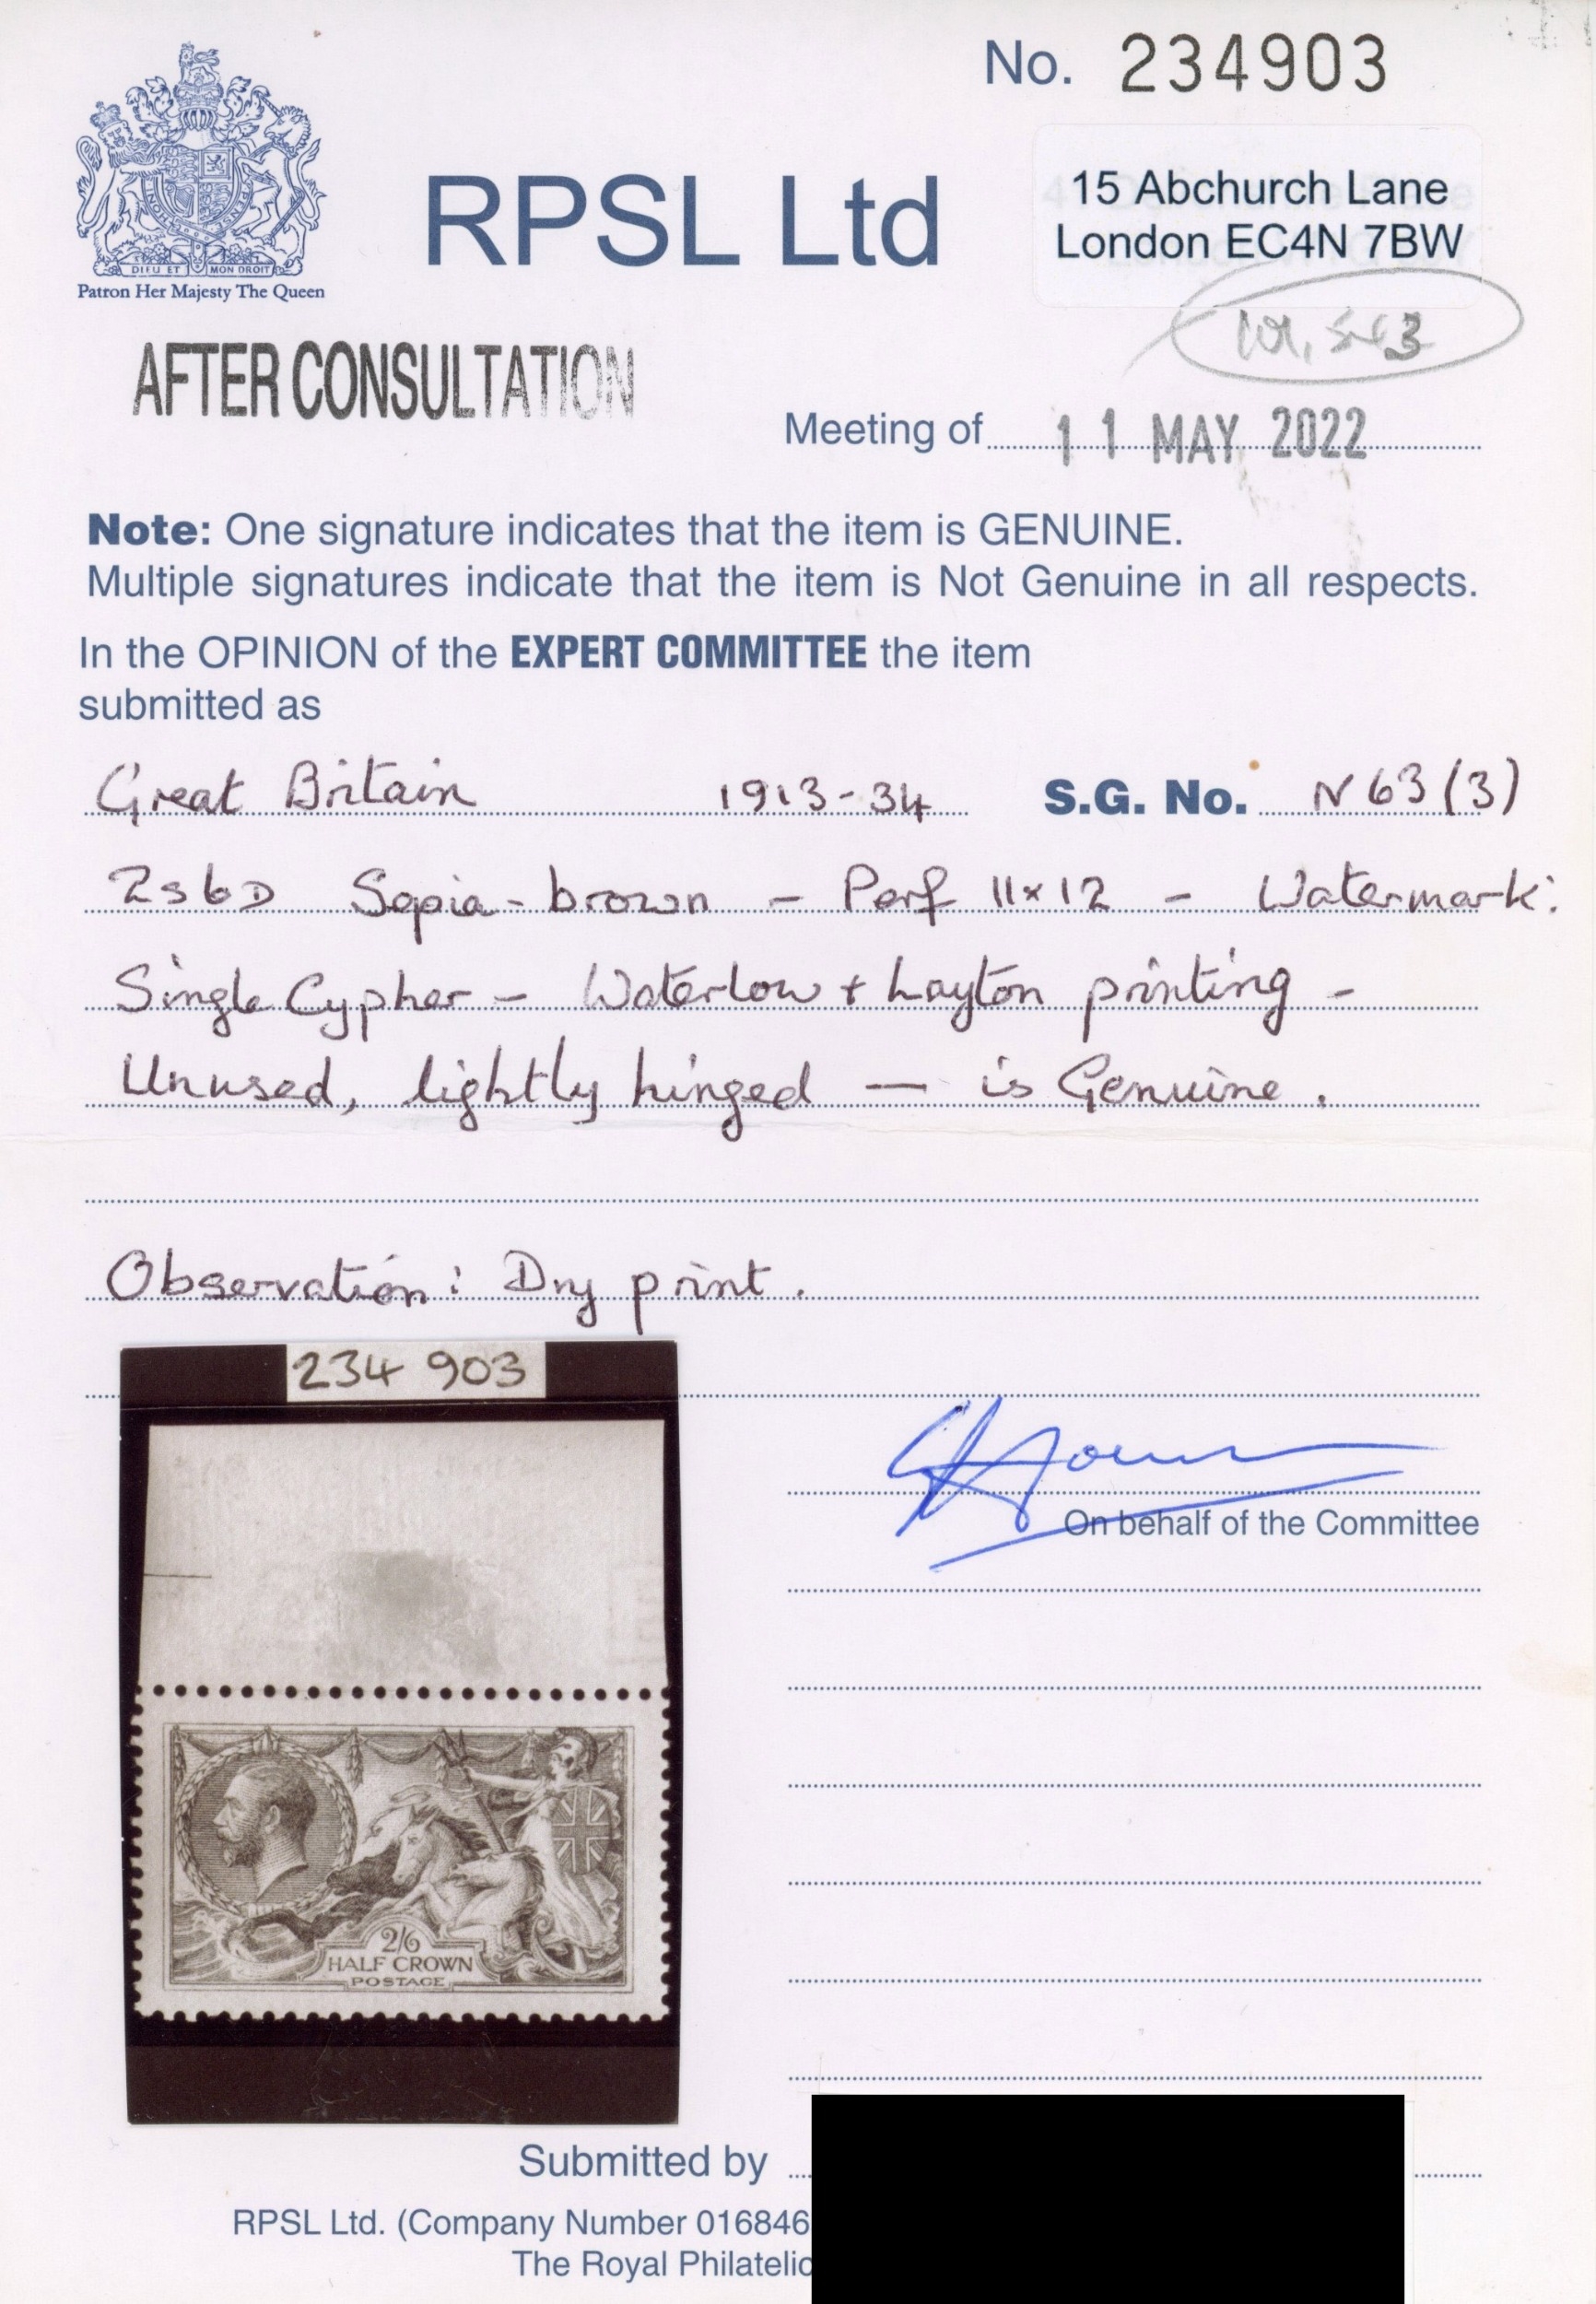 No. 234903
15 Abchurch Lane
London EC4N 7BW
RPSL Ltd
DIEU ET MON DROIT
Patron Her Majesty The Queen
AFTER CONSULTATION
Meeting of 11 MAY 2022
Note: One signature indicates that the item is GENUINE.
Multiple signatures indicate that the item is Not Genuine in all respects.
In the OPINION of the EXPERT COMMITTEE the item
submitted as
Great Britain 1913-34 S.G. No. N63(3)
2s6D Sepia-brown - Perf 11x12 - Watermark:
Single Cypher - Waterlow + Layton printing -
Unused, lightly hinged — is Genuine.
Observation: Dry print.
234 903
On behalf of the Committee
2/6
HALF CROWN
POSTAGE
Submitted by
RPSL Ltd. (Company Number 016846
The Royal Philatelic